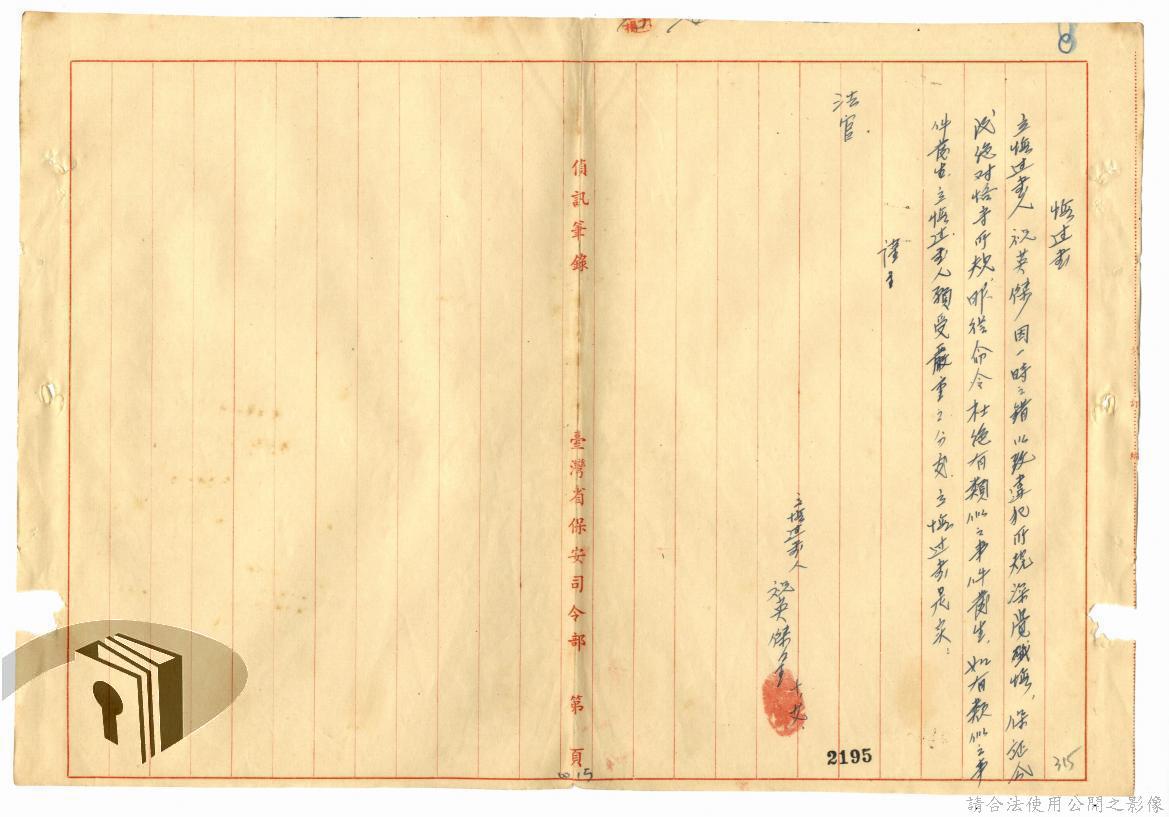 悔过书
立悔过书人祝英傑因一時之錯以致違犯所規深覺懺悔，保証今
後絶对恪守所規服從命令杜絶有類似之事件發生，如有類似之事
件發生立悔过书人願受嚴重之分，立悔过书是实：
謹呈
法官
立悔过书人
祝英傑
2195
315
偵訊筆錄 臺灣省保安司令部 第 頁
請合法使用公開之影像